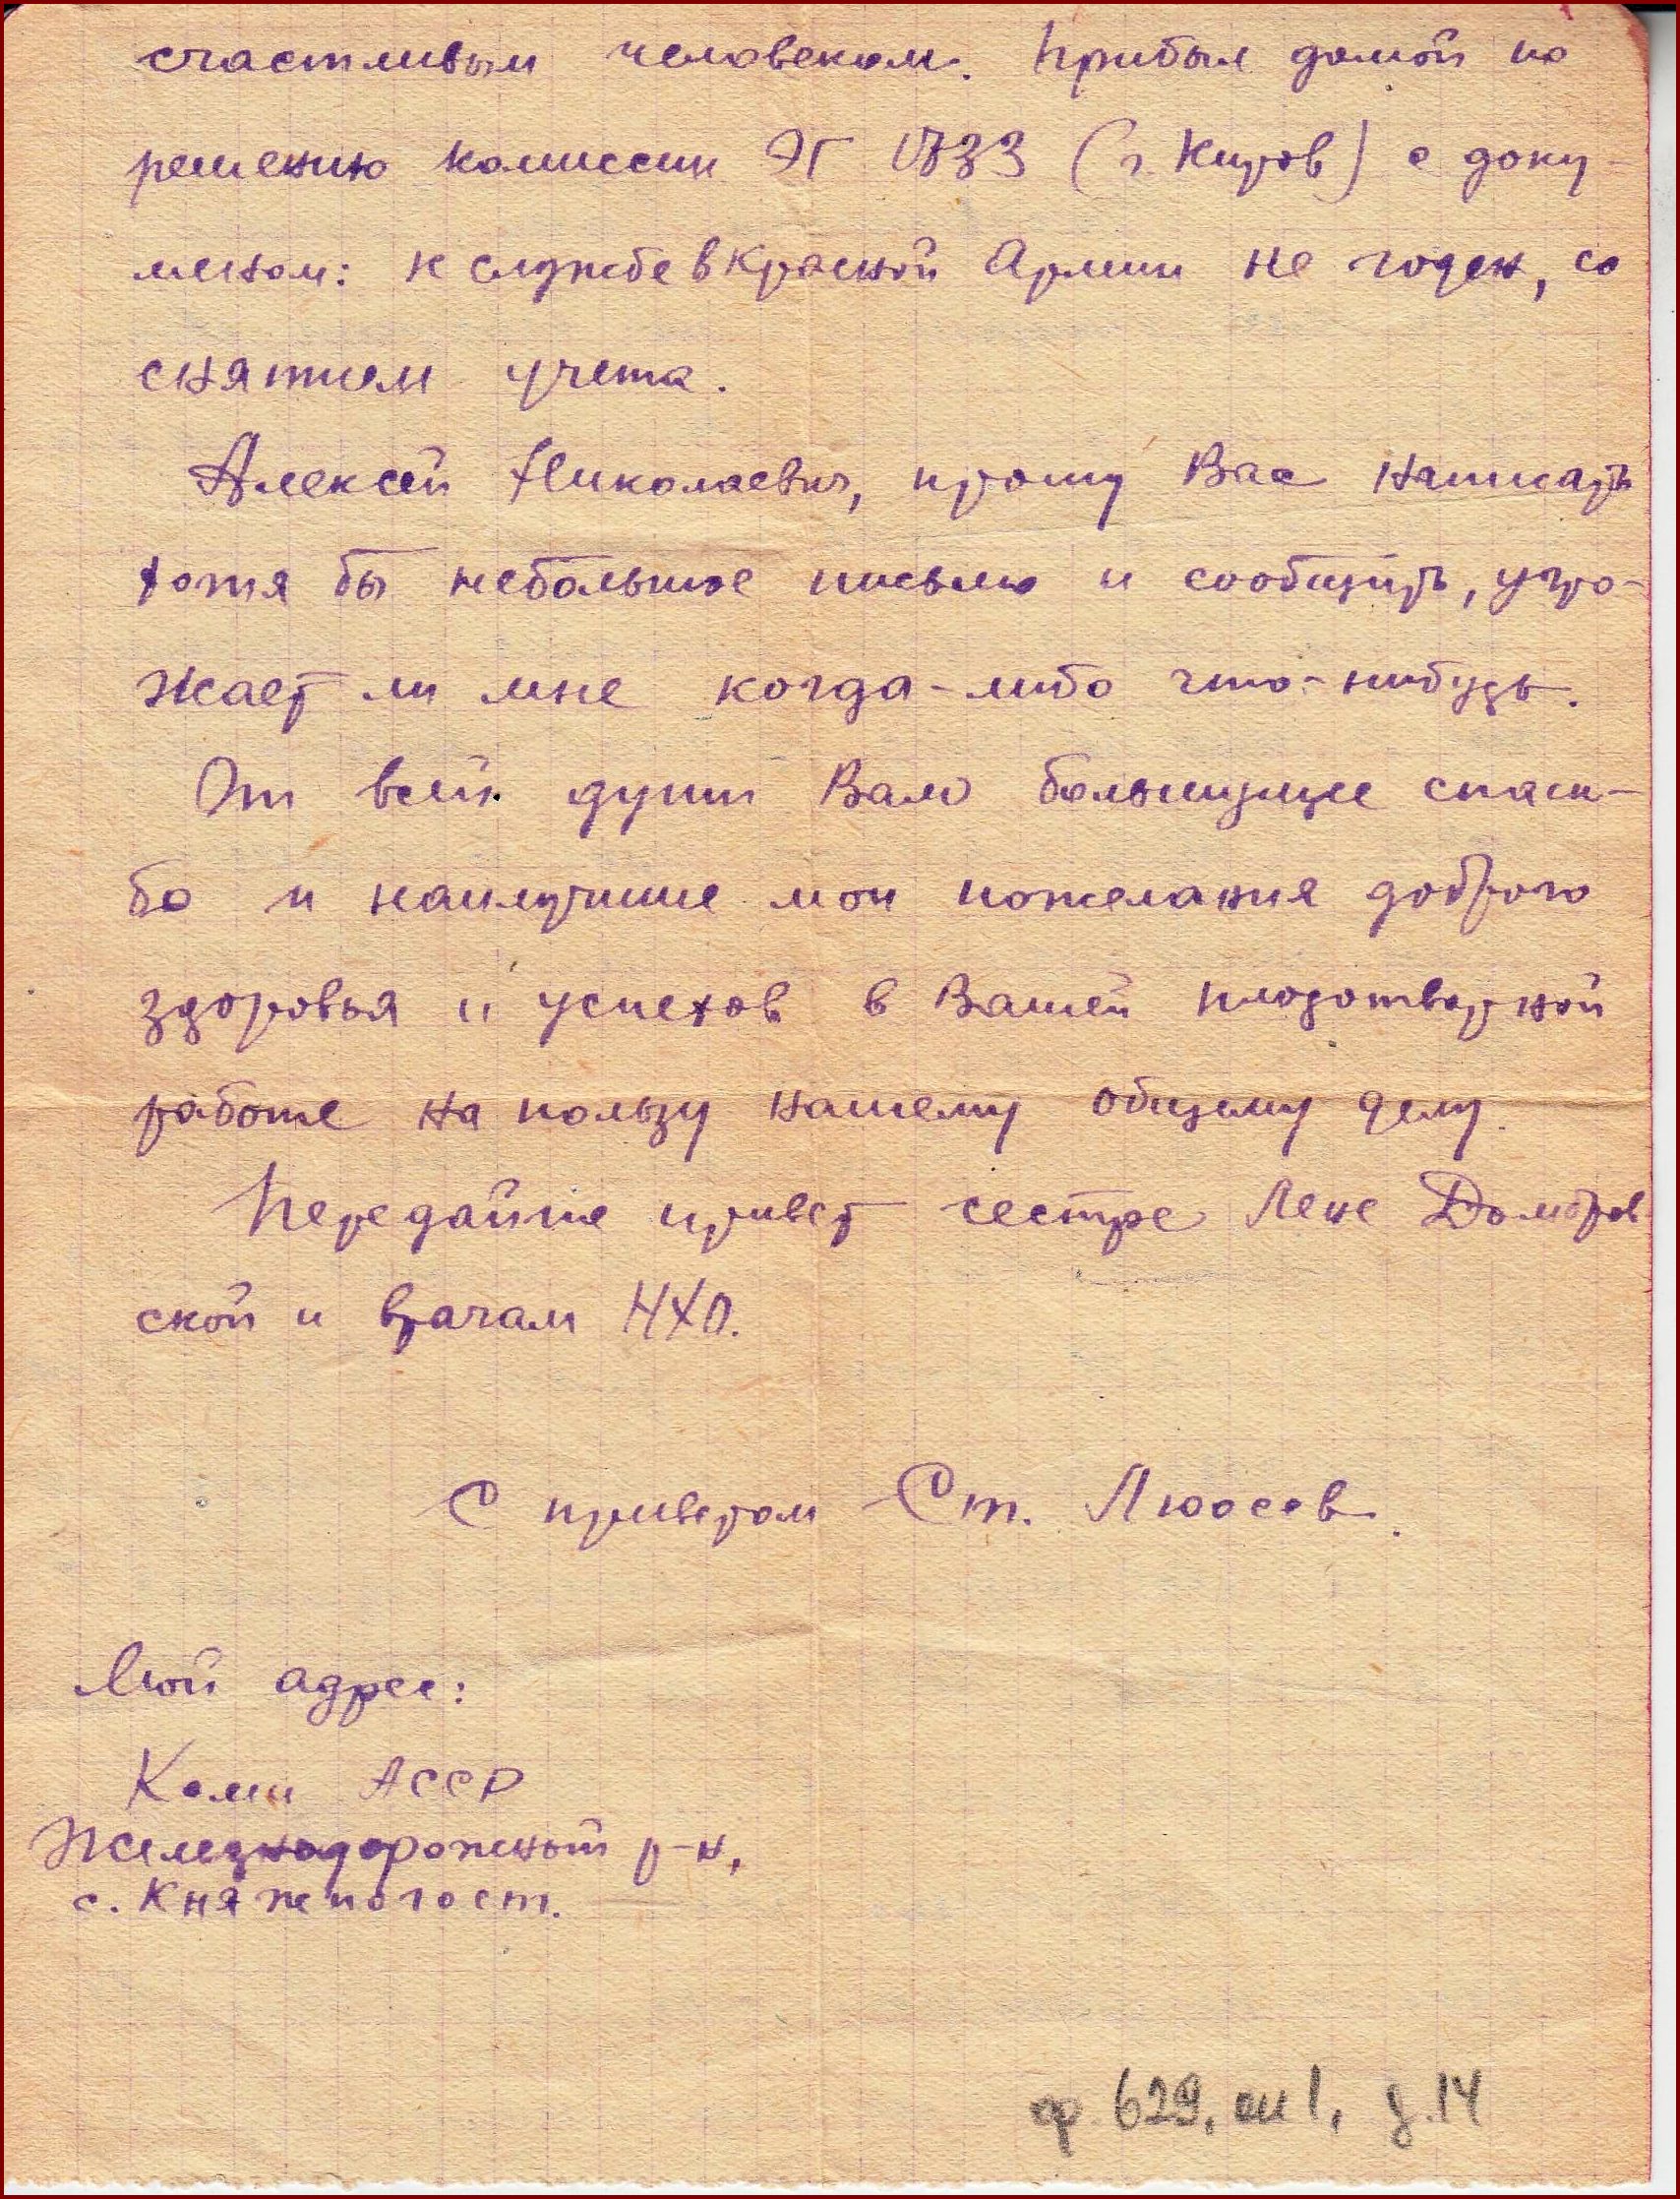 счастливым человеком. Прибыл домой по
решению комиссии ЭГ 1733 (г. Киров) с доку-
меном: к службе в Красной Армии не годен, со
снятием учета.
Алексей Николаевич, прошу Вас написать
хотя бы небольшое письмо и сообщить, угро-
жает ли мне когда-либо что-нибудь.
От всей души Вам большущее спаси-
бо и наилучшие мои пожелания доброго
здоровья и успехов в Вашей плодотворной
работе на пользу нашему общему делу.
Передайте привет сестре Лене Домбров-
ской и врачам НХО.
С приветом Ст. Люосев.
Мой адрес:
Коми АССР
Железнодорожный р-н,
с. Княжпогост.
ф. 629, оп 1, д. 14